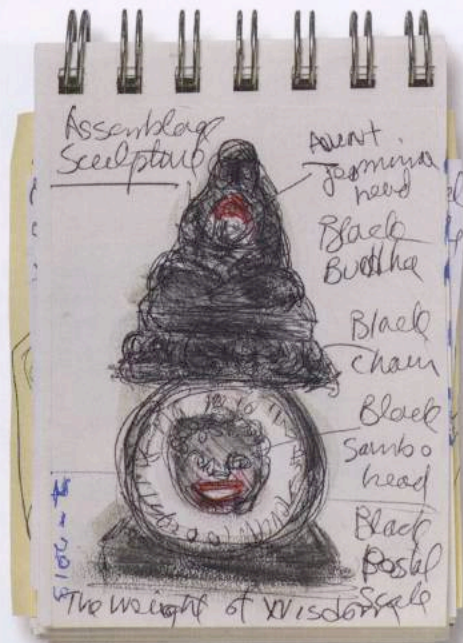 Assemblage
Sculpture
Aunt
Jemima
head
Black
Buddha
Black
Chain
Black
Sambo
head
Black
Postal
Scale
The Weight of Wisdom